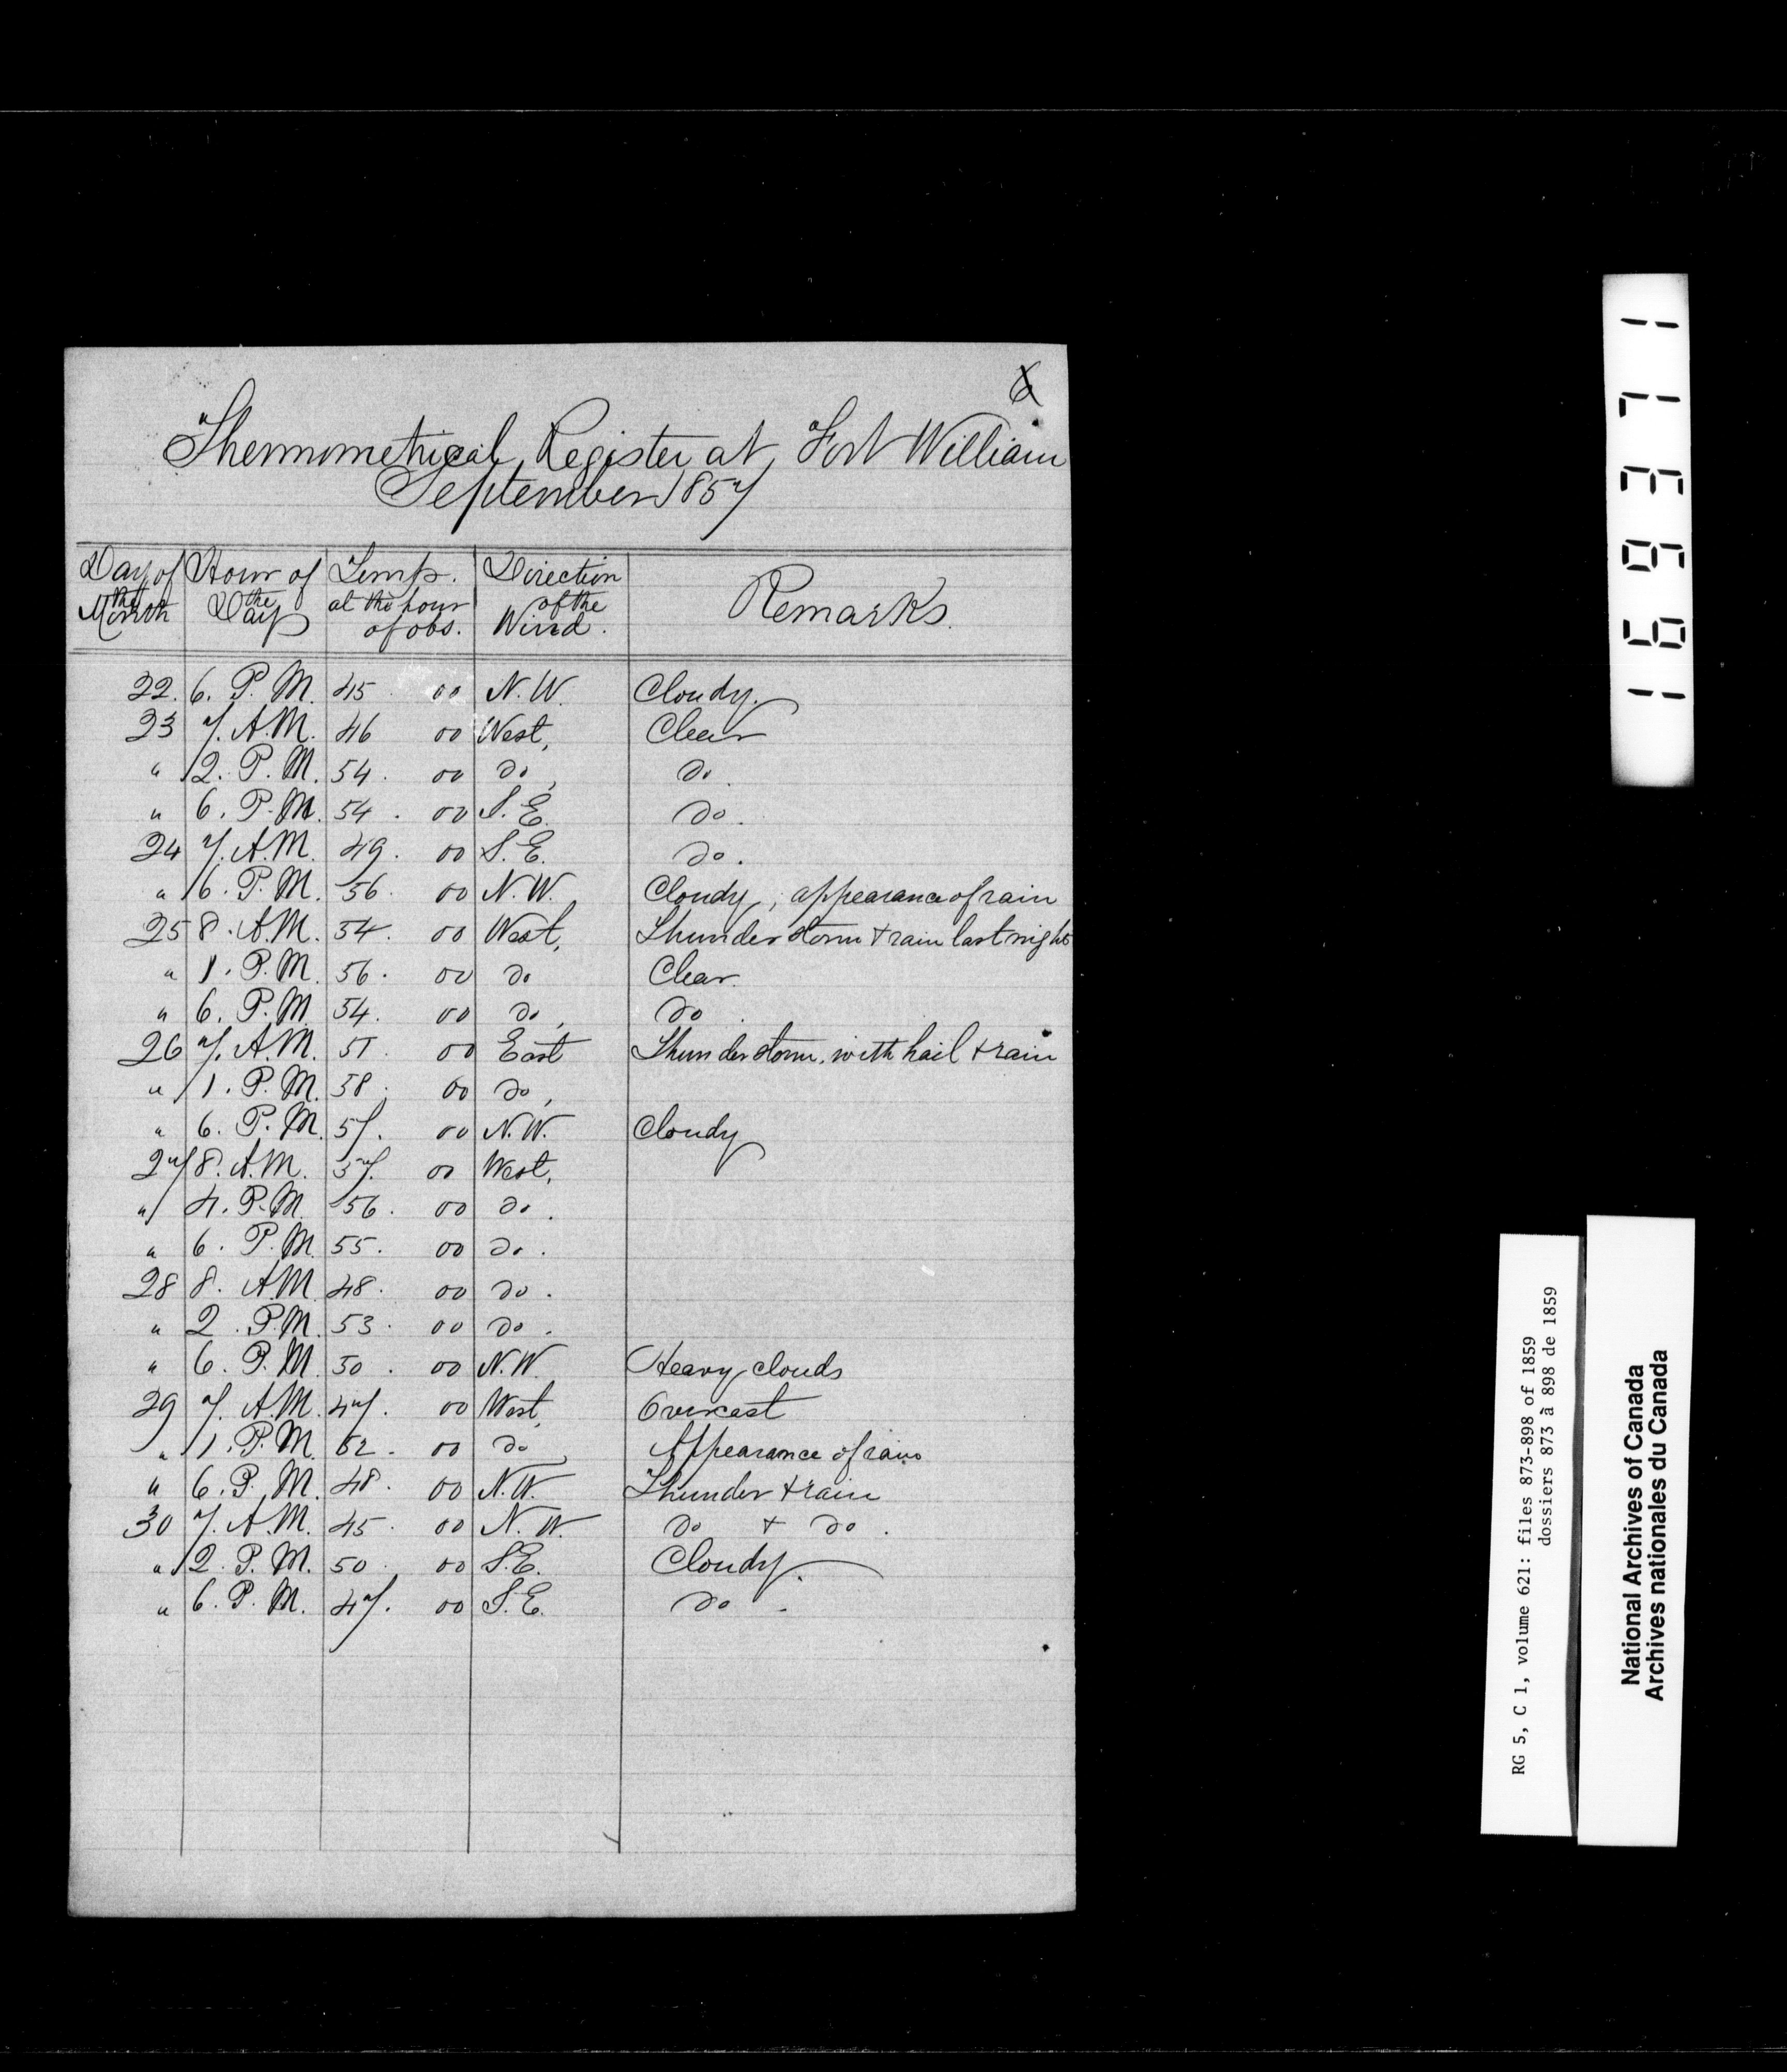 6
Thermometrical Register at Fort William
September 1857
Day of the Month | Hour of the Day | Temp. at the hour of obs. | Direction of the Wind. | Remarks.
22. 6. P.M. 45 . 00 N.W. Cloudy.
23 7. A.M. 46 00 West, Clear
" 2. P.M. 54. 00 do, do.
" 6. P.M. 54 . 00 S.E. do.
24 7. A.M. 49. 00 S.E. do.
" 6. P.M. 56. 00 N.W. Cloudy, appearance of rain
25 8. A.M. 54. 00 West, Thunder storm + rain last night
" 1. P.M. 56. 00 do Clear.
" 6. P.M. 54. 00 do, do.
26 7. A.M. 51. 00 East Thunder storm, with hail + rain
" 1. P.M. 58. 00 do,
" 6. P.M. 57. 00 N.W. Cloudy
27 8. A.M. 57. 00 West,
" 4. P.M. 56. 00 do.
" 6. P.M. 55. 00 do.
28 8. A.M. 48. 00 do.
" 2. P.M. 53. 00 do.
" 6. P.M. 50. 00 N.W. Heavy clouds
29 7. A.M. 47. 00 West, Overcast
" 1. P.M. 52. 00 do, Appearance of rain
" 6. P.M. 48. 00 N.W. Thunder + rain
30 7. A.M. 45. 00 N.W. do + do.
" 2. P.M. 50. 00 S.E. Cloudy.
" 6. P.M. 47. 00 S.E. do.
169371
RG 5, C 1, volume 621: files 873-898 of 1859
dossiers 873 à 898 de 1859
National Archives of Canada
Archives nationales du Canada